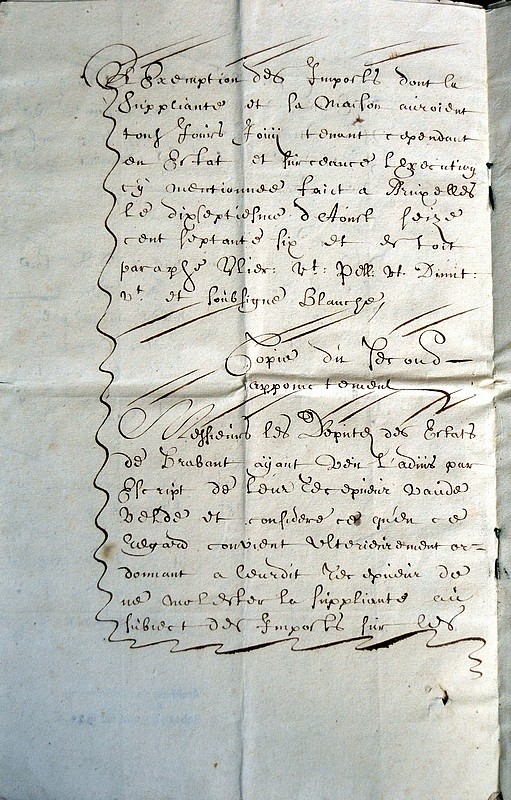 L Exemption des Imposts dont la
Suppliante et sa Maison auroient
tous Jours Jouij tenant cependant
en Estat et surceance L'execution
cÿ mentionnee faict a Bruxelles
le dixseptiesme d'Aoust seize
cent septante six et estoit
paraphé Vlier: vt: Pell: vt. Dimit:
vt. et soubsigne Blanche,
Copie du Second
appoinctement
Messieurs les Deputez des Estats
de Brabant aÿant veu l'aduis par
Escript de leur Recepueur vande
Velde et considere ce qu'en ce
Regard convient ulterieurement or=
donnant a leurdit Recepueur de
ne molester la suppliante au
subiect des Imposts sur les